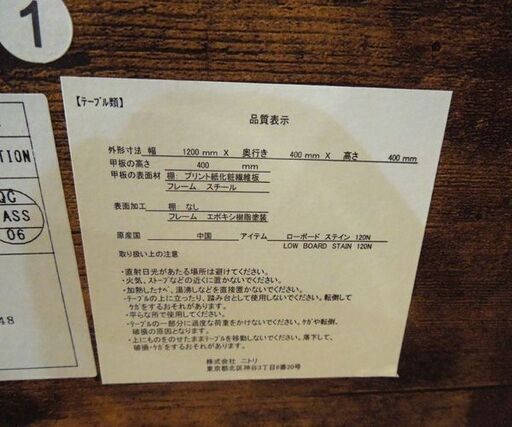 1
TION
QC
ASS
06
48
【テーブル類】
品質表示
外形寸法 幅 1200 mm X 奥行き 400 mm X 高さ 400 mm
甲板の高さ 400 mm
甲板の表面材 棚: プリント紙化粧繊維板
フレーム スチール
表面加工 棚: なし
フレーム エポキシ樹脂塗装
原産国 中国 アイテム ローボード ステイン 120N
LOW BOARD STAIN 120N
取り扱い上の注意
・直射日光があたる場所は避けてください。
・火気、ストーブなどの近くに置かないでください。
・加熱したナベ、湯沸などを直接置かないでください。
・テーブルの上に立ったり、踏み台として使用しないでください。転倒して
ケガをするおそれがあります。
・平らな所で使用してください。
・テーブルの一部分に過度な荷重をかけないでください。ケガや転倒、
破損の原因となります。
・上にものをのせたままテーブルを移動しないでください。落下して、
破損・ケガをするおそれがあります。
株式会社 ニトリ
東京都北区神谷3丁目6番20号